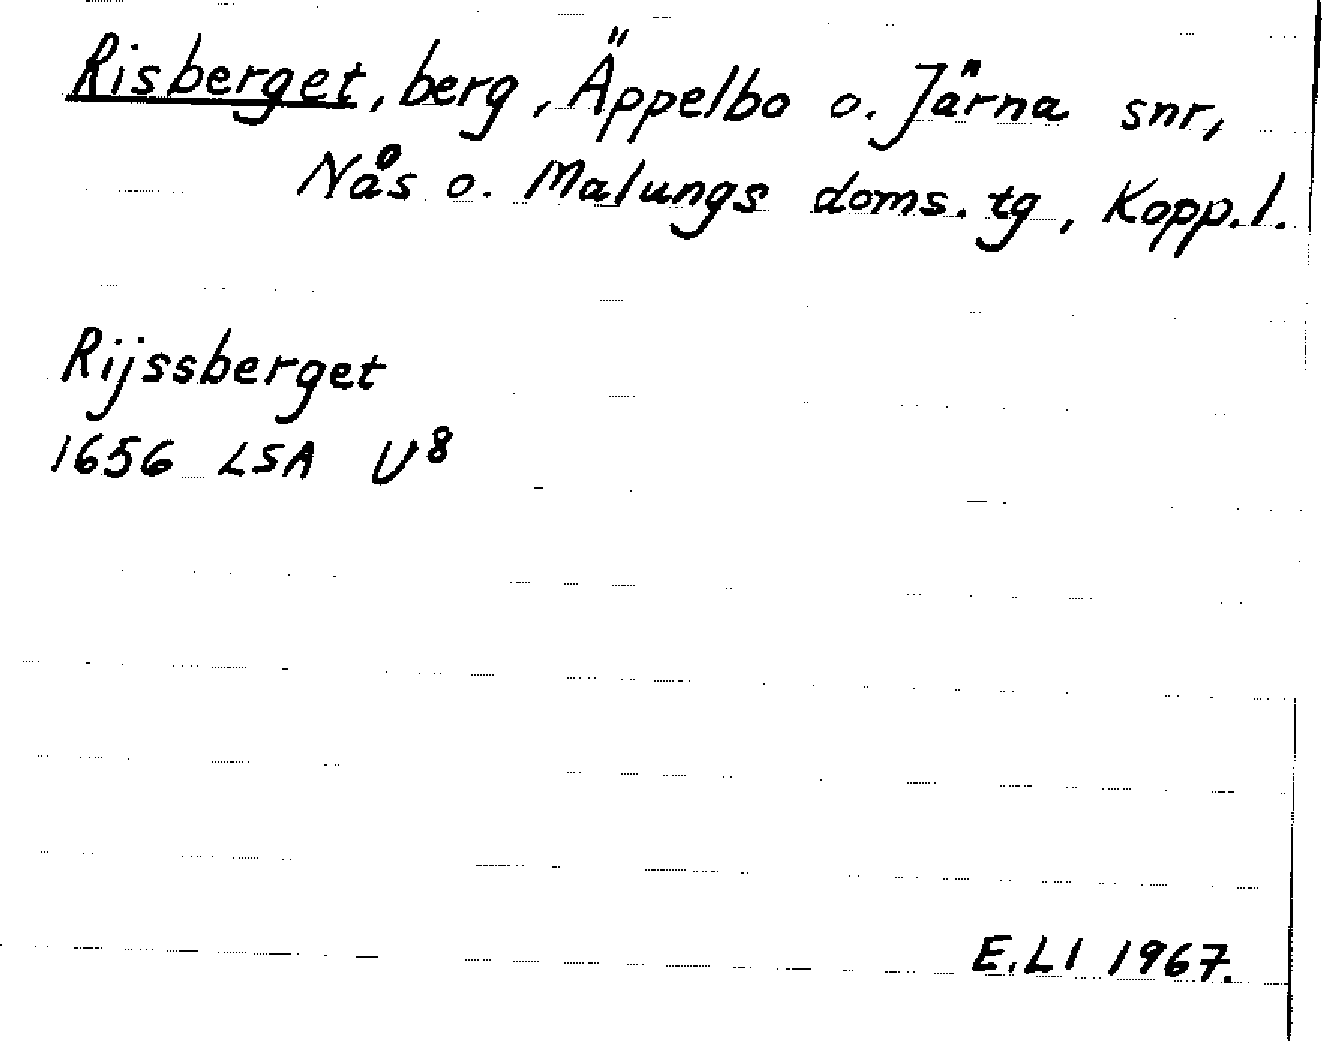 Risberget, berg, Äppelbo o. Järna snr,
Nås o. Malungs doms. tg, Kopp.l.
Rijssberget
1656 LSA U⁸
E.LI 1967.